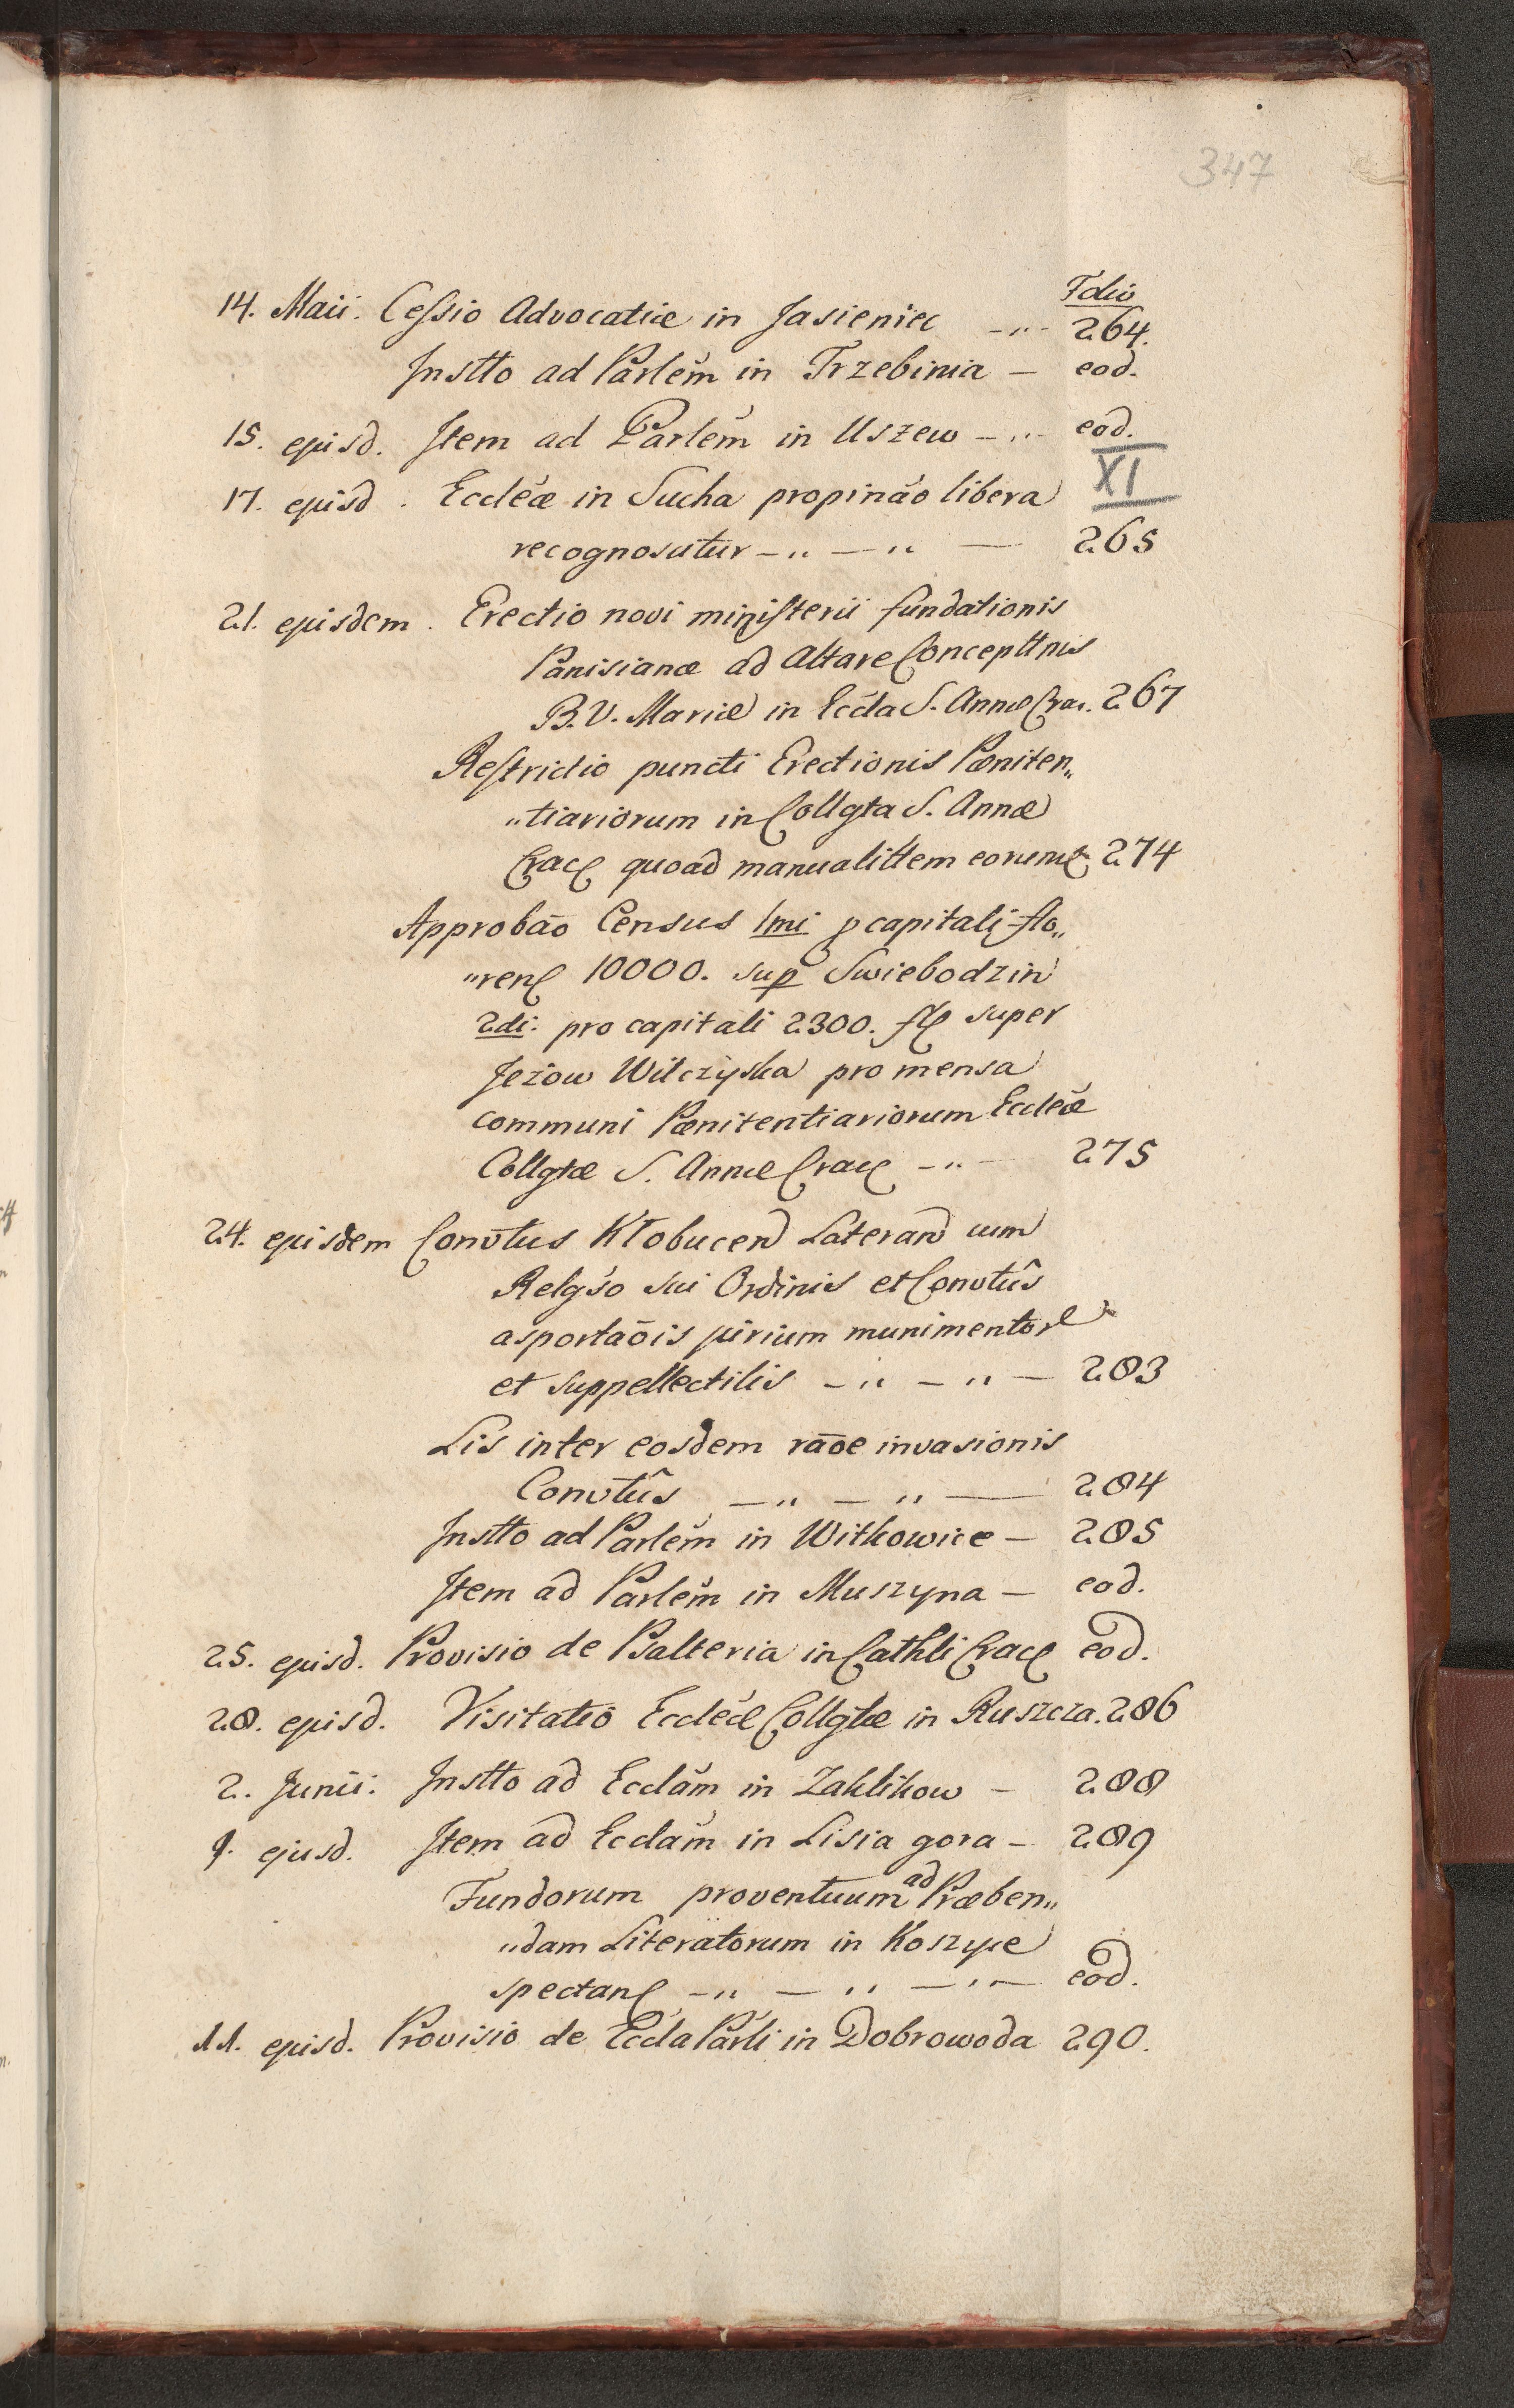 347
Folio
14. Maii. Cessio Advocatiæ in Jasieniec -„- 264.
Instto ad Parlem̃ in Trzebinia — eod.
15. ejusd. Item ad Parlem̃ in Uszew -„- eod.
XI
17. ejusd. Eccleæ in Sucha propinão libera
recognoscitur -„ — „ — 265
21. ejusdem. Erectio novi ministerii fundationis
Panisianæ ad Altare Concepttnis
B.V. Mariæ in Eccla S. Annæ Crac. 267
Restrictio puncti Erectionis Pœniten„
„tiariorum in Collgta S. Annæ
Crac quoad manualittem eorum 274
Approbão Census 1mi p capitali flo„
„ren 10000. sup Swiebodzin
2di: pro capitali 2300. fl super
Jeżow Wilczyska pro mensa
communi Pœnitentiariorum Eccleæ
Collgtæ S. Annæ Crac -„- 275
24. ejusdem Convtus Kłobucen Lateran cum
Relgso sui Ordinis et Convtûs
asportaõis jurium munimentor
et suppellectilis -„ -„ — 283
Lis inter eosdem raõe invasionis
Convtûs -„ — „ — 284
Instto ad Parlem̃ in Witkowice — 285
Item ad Parlem̃ in Muszyna — eod.
25. ejusd. Provisio de Psalteria in Cathli Crac eod.
28. ejusd. Visitatio Eccleæ Collgtæ in Ruszcza. 286
2. Junii. Instto ad Ecclam̃ in Zaklikow — 288
9. ejusd. Item ad Ecclam̃ in Lisia gora — 289
Fundorum proventuum ad Præben„
„dam Literatorum in Koszyce
spectan -„ — „ -„- eod.
11. ejusd. Provisio de Eccla Parli in Dobrowoda 290.